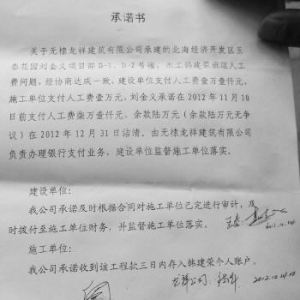 承诺书
关于无棣龙祥建筑有限公司承建的北海经济开发区玉
泰花园刘金义项目部D-1、D-2号楼,水工韩建荣班组人工
费问题,经协商达成一致,建设单位支付人工费壹万壹仟元,
施工单位支付人工费壹万元,刘金义承诺在 2012 年 11 月 10
日前支付人工费柒万壹仟元,余款陆万元(余款陆万元无争
议)在 2012 年 12 月 31 日结清。由无棣龙祥建筑有限公司
负责办理银行支付业务,建设单位监督施工单位落实。
建设单位:
我公司承诺及时根据合同对施工单位已完进行审计,及
时拨付至施工单位财务,并监督施工单位落实。
施工单位:
我公司承诺收到该工程款三日内存入韩建荣个人账户。